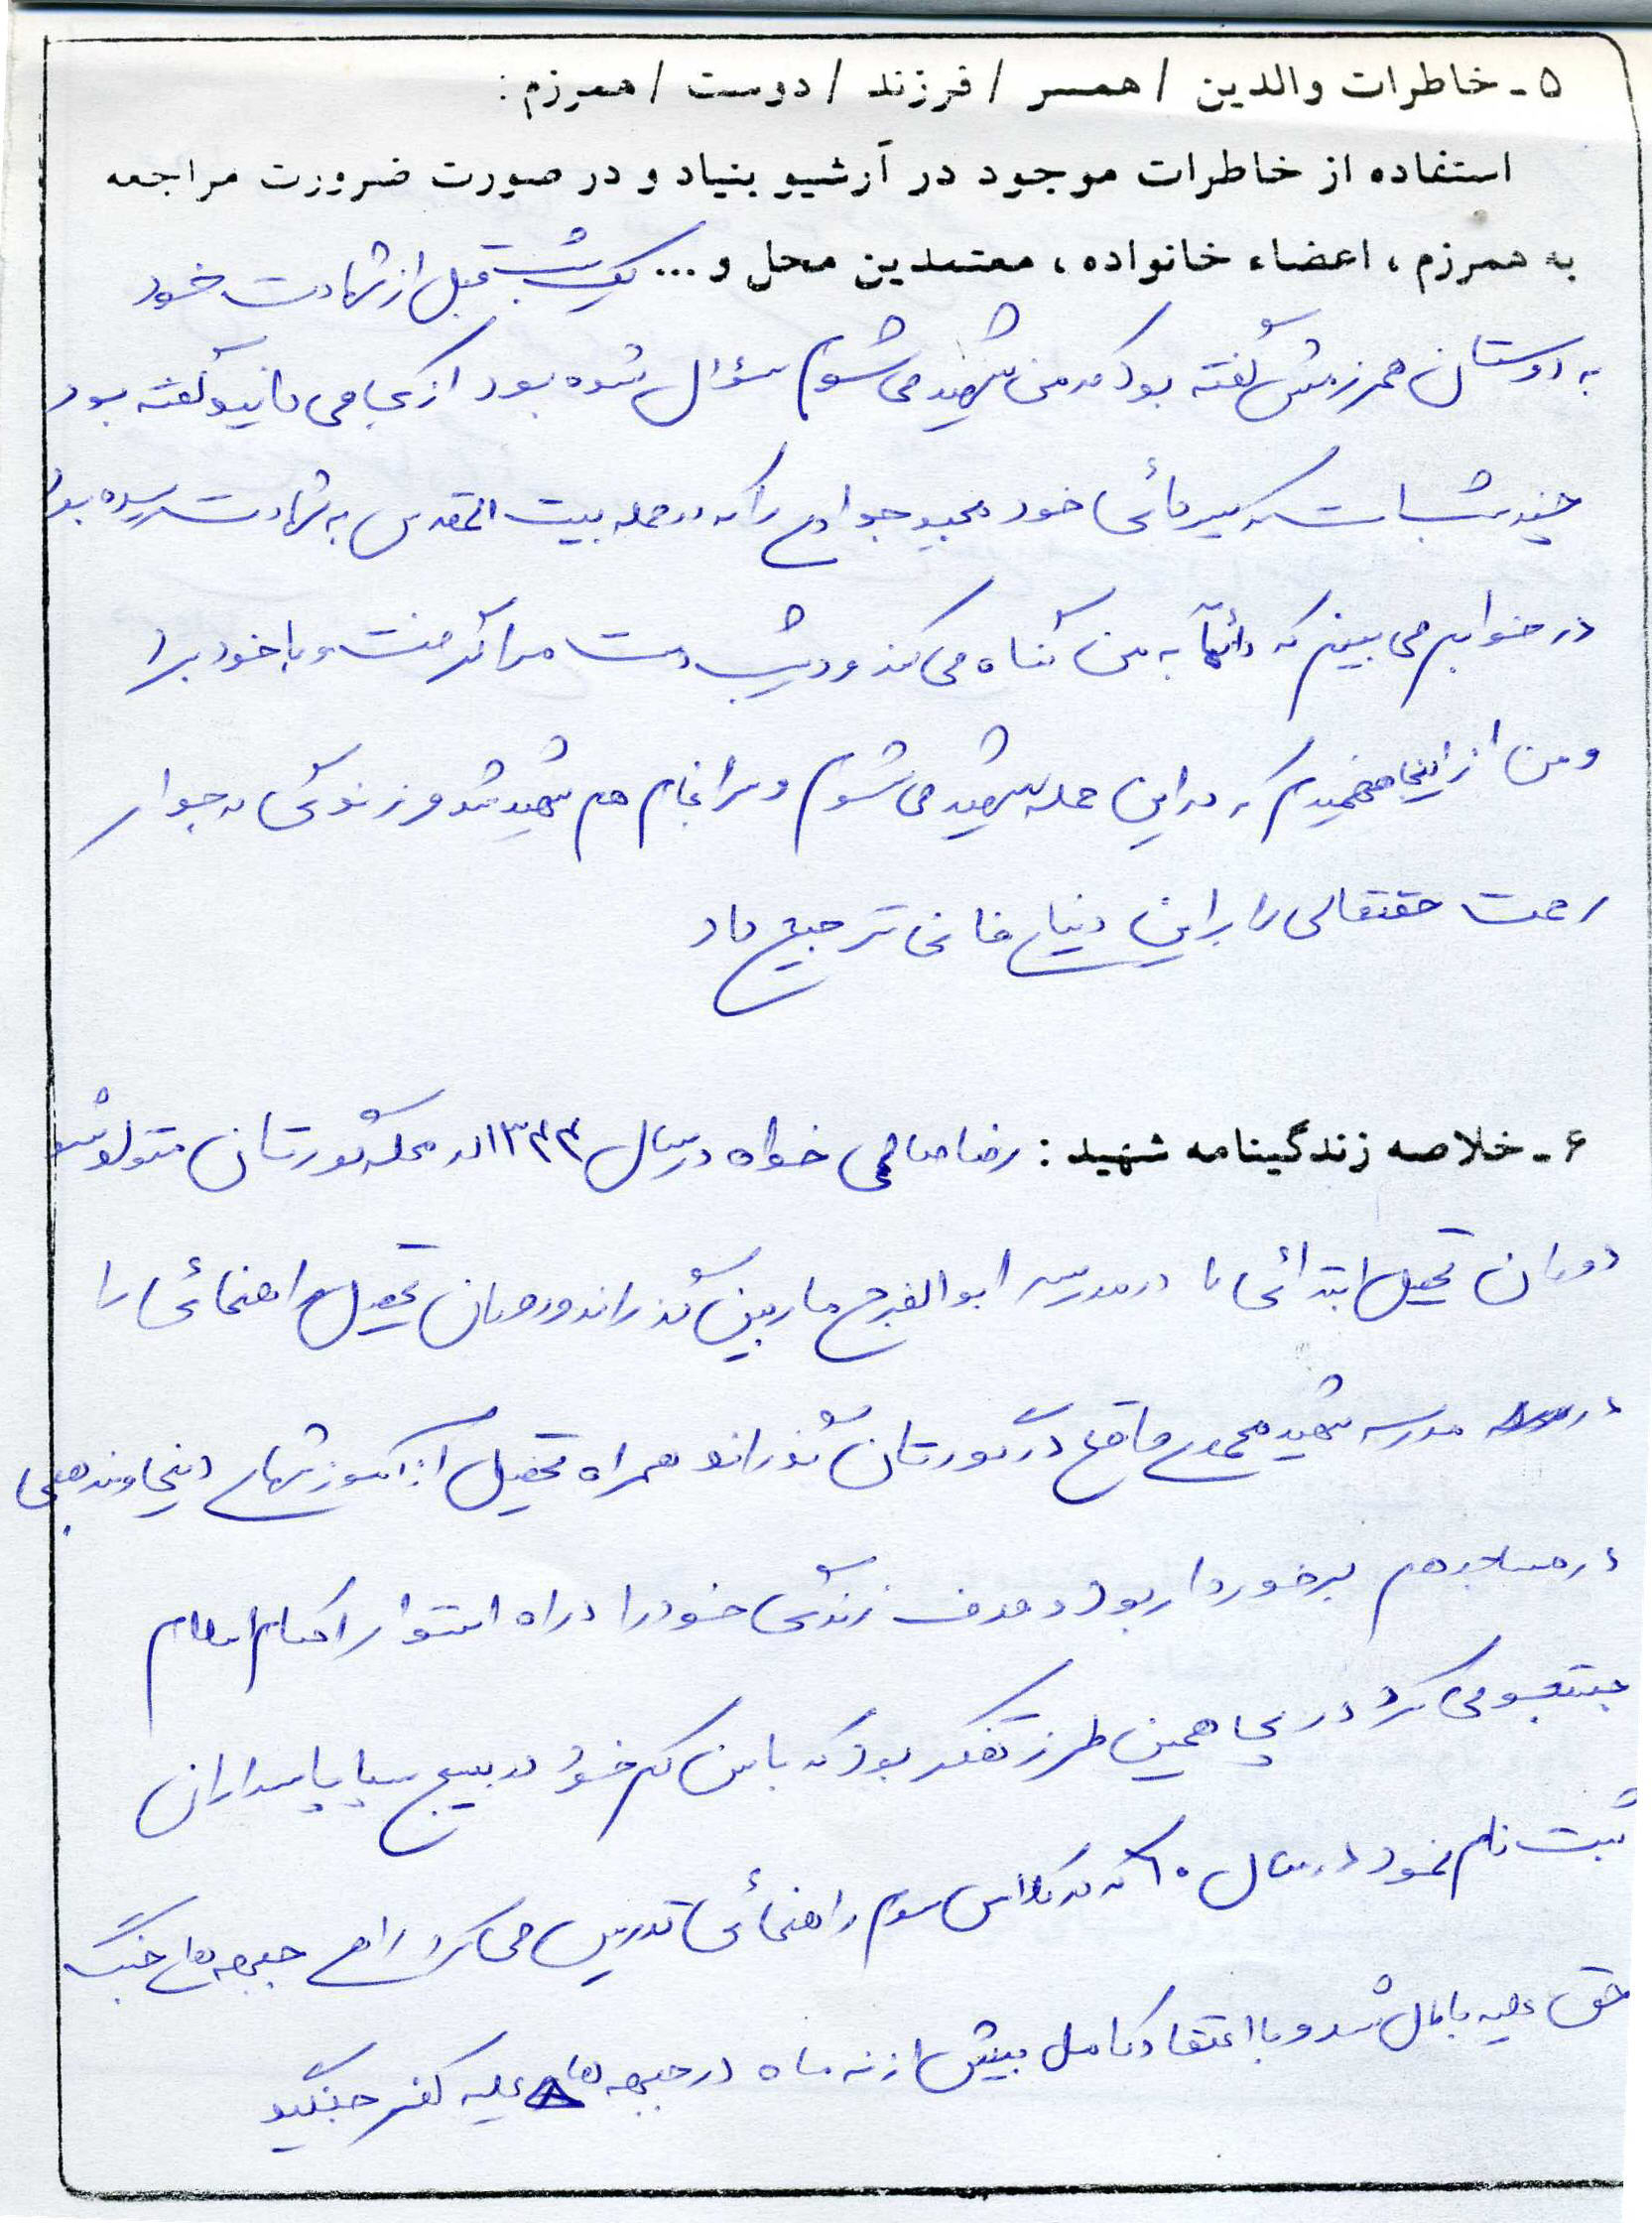 ۵ - خاطرات والدین / همسر / فرزند / دوست / همرزم :
استفاده از خاطرات موجود در آرشیو بنیاد و در صورت ضرورت مراجعه
به همرزم ، اعضاء خانواده ، معتمدین محل و ... یک شب قبل از شهادت خود
به دوستان همرزمش گفته بود که من شهید می شوم سؤال شده بود از کجا می دانید گفته بود
چند شب است که پسر دائی خود مجید جوادی را که در حمله بیت المقدس به شهادت رسیده بود
در خوابم می بینم که دائماً به من نگاه می کند و دیشب دست مرا گرفت و با خود برد
و من از اینجا فهمیدم که در این حمله شهید می شوم و سرانجام هم شهید شد و زندگی در جوار
رحمت حقتعالی را بر این دنیای فانی ترجیح داد
۶ - خلاصه زندگینامه شهید : رضا صالحی خواه در سال ۱۳۴۴ در محله کورتان متولد شد
دوران تحصیل ابتدائی را در مدرسه ابوالفرج ماربین گذراند و دوران تحصیل راهنمائی را
در مدرسه شهید محمدی در کورتان گذراند و همراه تحصیل از آموزشهای دینی و مذهبی
در مساجد هم برخوردار بود و هدف زندگی خود را در راه استوار احکام اسلام
جستجو می کرد در پی همین طرز تفکر بود که با سن کم خود در بسیج سپاه پاسداران
ثبت نام نمود در سال ۶۰ که در کلاس سوم راهنمائی تدریس می کرد راهی جبهه های جنگ
حق علیه باطل شد و با اعتقاد کامل بیش از نه ماه در جبهه های علیه کفر جنگید